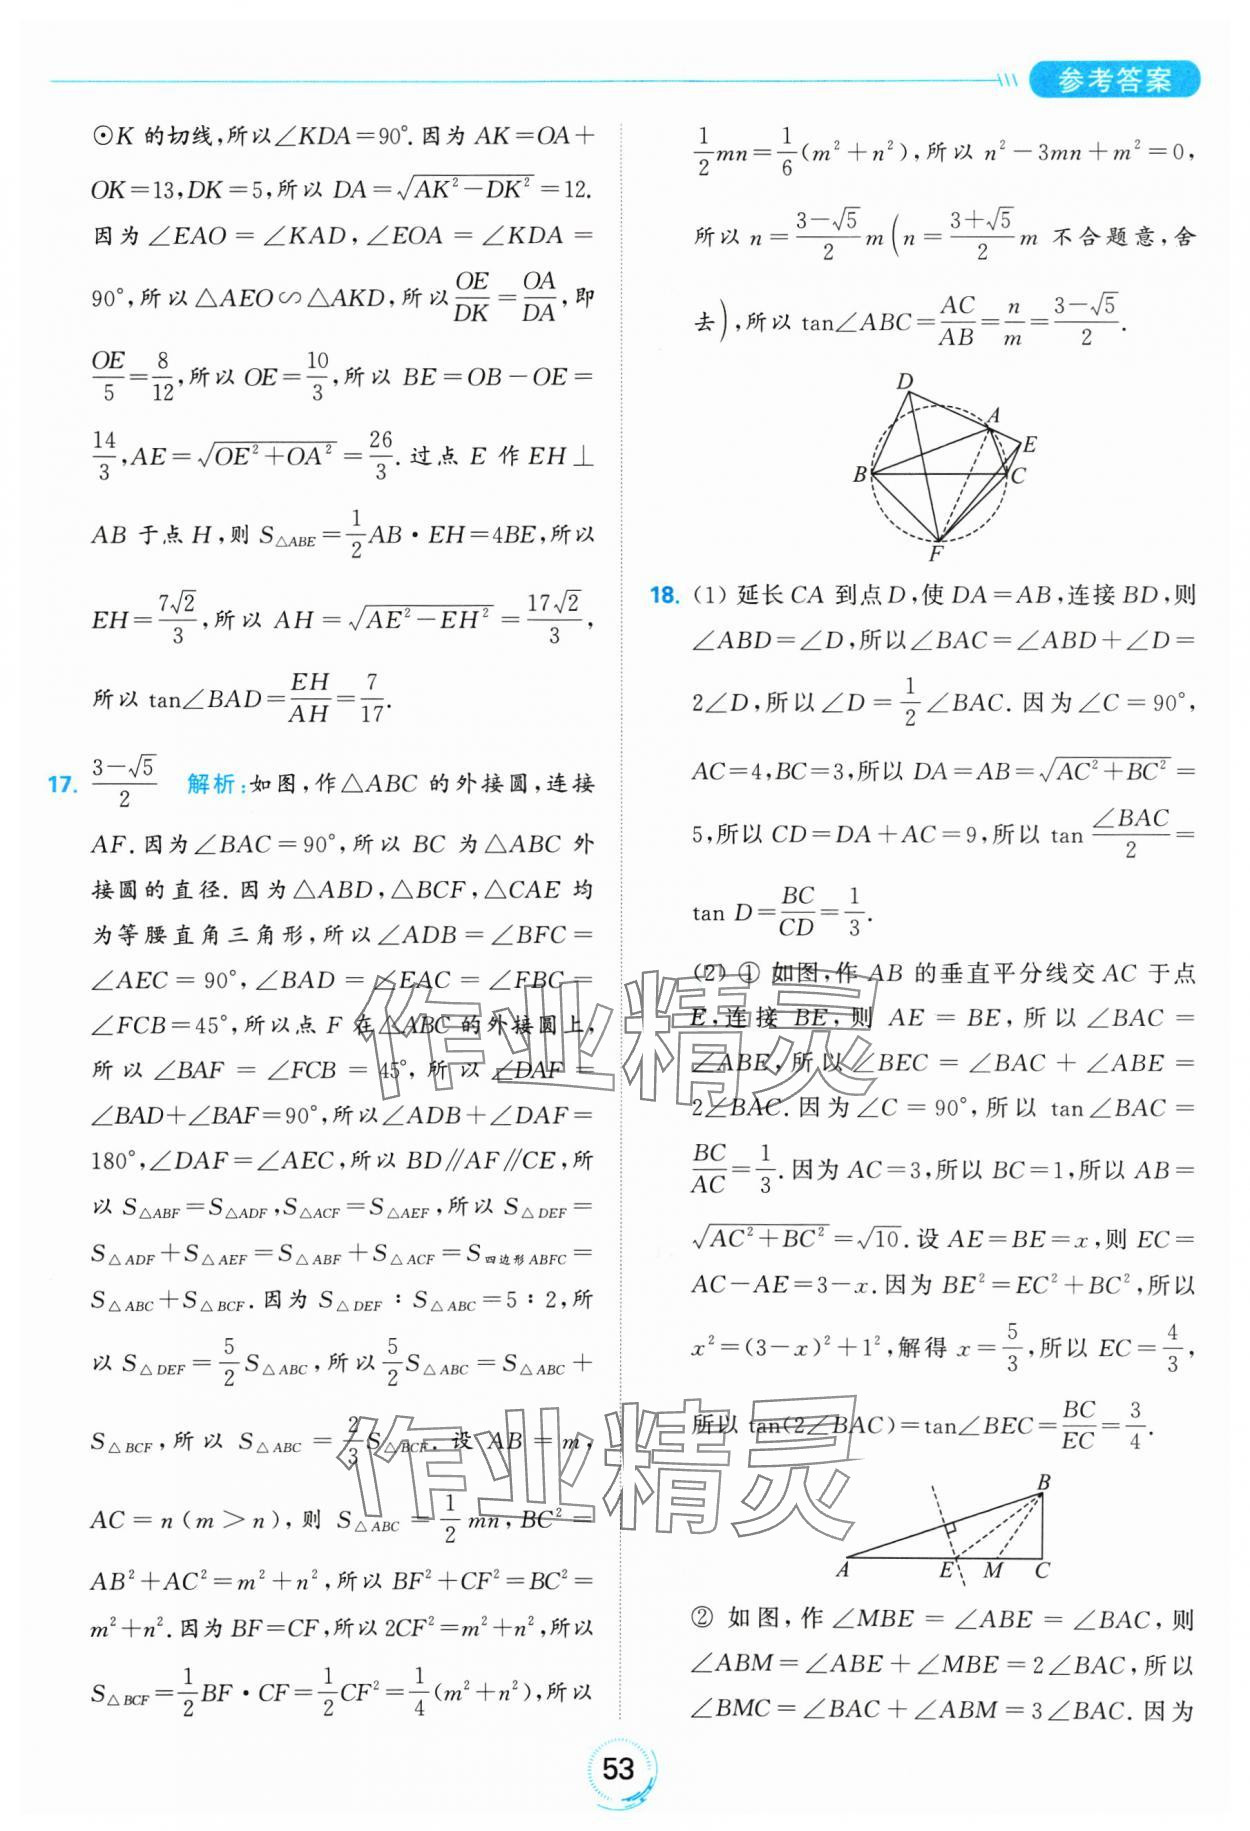 参考答案
⊙K 的切线,所以∠KDA=90°.因为 AK=OA+
OK=13,DK=5,所以 DA=√(AK²-DK²)=12.
因为∠EAO=∠KAD,∠EOA=∠KDA=
90°,所以△AEO∽△AKD,所以OE/DK=OA/DA,即
OE/5=8/12,所以 OE=10/3,所以 BE=OB-OE=
14/3,AE=√(OE²+OA²)=26/3.过点 E 作 EH⊥
AB 于点 H,则 S△ABE=1/2AB·EH=4BE,所以
EH=7√2/3,所以 AH=√(AE²-EH²)=17√2/3,
所以 tan∠BAD=EH/AH=7/17.
17. (3-√5)/2 解析:如图,作△ABC 的外接圆,连接
AF.因为∠BAC=90°,所以 BC 为△ABC 外
接圆的直径.因为△ABD,△BCF,△CAE 均
为等腰直角三角形,所以∠ADB=∠BFC=
∠AEC=90°,∠BAD=∠EAC=∠FBC=
∠FCB=45°,所以点 F 在△ABC 的外接圆上,
所以∠BAF=∠FCB=45°,所以∠DAF=
∠BAD+∠BAF=90°,所以∠ADB+∠DAF=
180°,∠DAF=∠AEC,所以 BD∥AF∥CE,所
以 S△ABF=S△ADF,S△ACF=S△AEF,所以 S△DEF=
S△ADF+S△AEF=S△ABF+S△ACF=S四边形ABFC=
S△ABC+S△BCF.因为 S△DEF∶S△ABC=5∶2,所
以 S△DEF=5/2S△ABC,所以5/2S△ABC=S△ABC+
S△BCF,所以 S△ABC=2/3S△BCF.设 AB=m,
AC=n(m>n),则 S△ABC=1/2mn,BC²=
AB²+AC²=m²+n²,所以 BF²+CF²=BC²=
m²+n².因为 BF=CF,所以 2CF²=m²+n²,所以
S△BCF=1/2BF·CF=1/2CF²=1/4(m²+n²),所以
1/2mn=1/6(m²+n²),所以 n²-3mn+m²=0,
所以 n=(3-√5)/2 m(n=(3+√5)/2 m 不合题意,舍
去),所以 tan∠ABC=AC/AB=n/m=(3-√5)/2.
D
A
E
B
C
F
18. (1) 延长 CA 到点 D,使 DA=AB,连接 BD,则
∠ABD=∠D,所以∠BAC=∠ABD+∠D=
2∠D,所以∠D=1/2∠BAC.因为∠C=90°,
AC=4,BC=3,所以 DA=AB=√(AC²+BC²)=
5,所以 CD=DA+AC=9,所以 tan ∠BAC/2=
tan D=BC/CD=1/3.
(2) ① 如图,作 AB 的垂直平分线交 AC 于点
E,连接 BE,则 AE=BE,所以∠BAC=
∠ABE,所以∠BEC=∠BAC+∠ABE=
2∠BAC.因为∠C=90°,所以 tan∠BAC=
BC/AC=1/3.因为 AC=3,所以 BC=1,所以 AB=
√(AC²+BC²)=√10.设 AE=BE=x,则 EC=
AC-AE=3-x.因为 BE²=EC²+BC²,所以
x²=(3-x)²+1²,解得 x=5/3,所以 EC=4/3,
所以 tan(2∠BAC)=tan∠BEC=BC/EC=3/4.
B
A
E
M
C
② 如图,作∠MBE=∠ABE=∠BAC,则
∠ABM=∠ABE+∠MBE=2∠BAC,所以
∠BMC=∠BAC+∠ABM=3∠BAC.因为
53
作业精灵
作业精灵